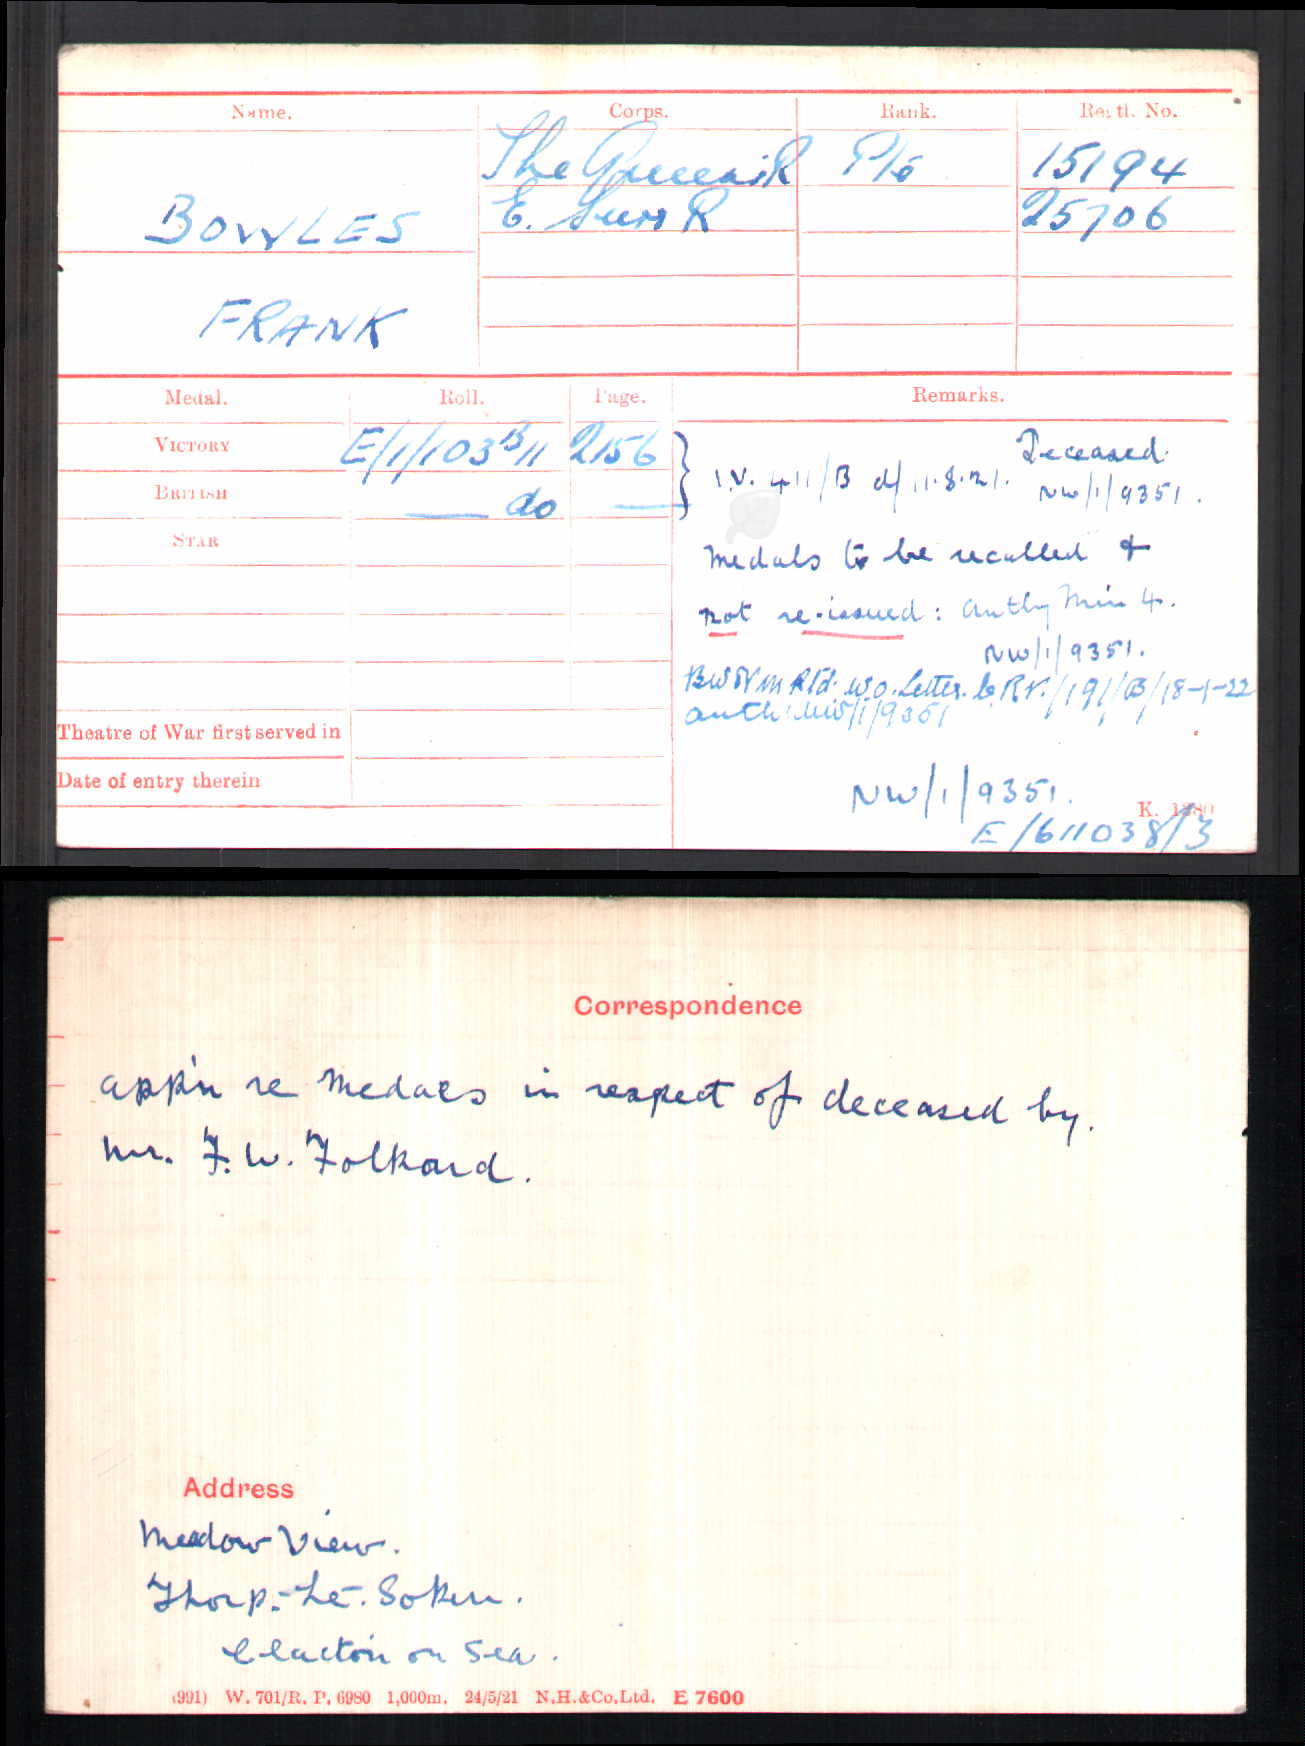 Name. Corps. Rank. Regtl. No.
The Queen's R Pte 15194
BOWLES E. Surr R 25706
FRANK
Medal. Roll. Page. Remarks.
VICTORY E/1/103 B11 2156 Deceased.
I.V. 411/B d/ 11.8.21. NW/1/9351.
BRITISH do
STAR
Medals to be recalled &
not re-issued: Authy Min 4.
NW/1/9351.
BW & VM Rtd. W.O. Letter. 6.RV./191/B/18-1-22
auth: NW/1/9351
Theatre of War first served in
Date of entry therein
NW/1/9351.
K. 1380
E/611038/3
Correspondence
App'n re Medals in respect of deceased by.
Mr. F. W. Folkard.
Address
Meadow View.
Thorp.-Le-. Soken.
Clacton on Sea.
(991) W. 701/R. P. 6980 1,000m. 24/5/21 N.H.&Co.Ltd. E 7600